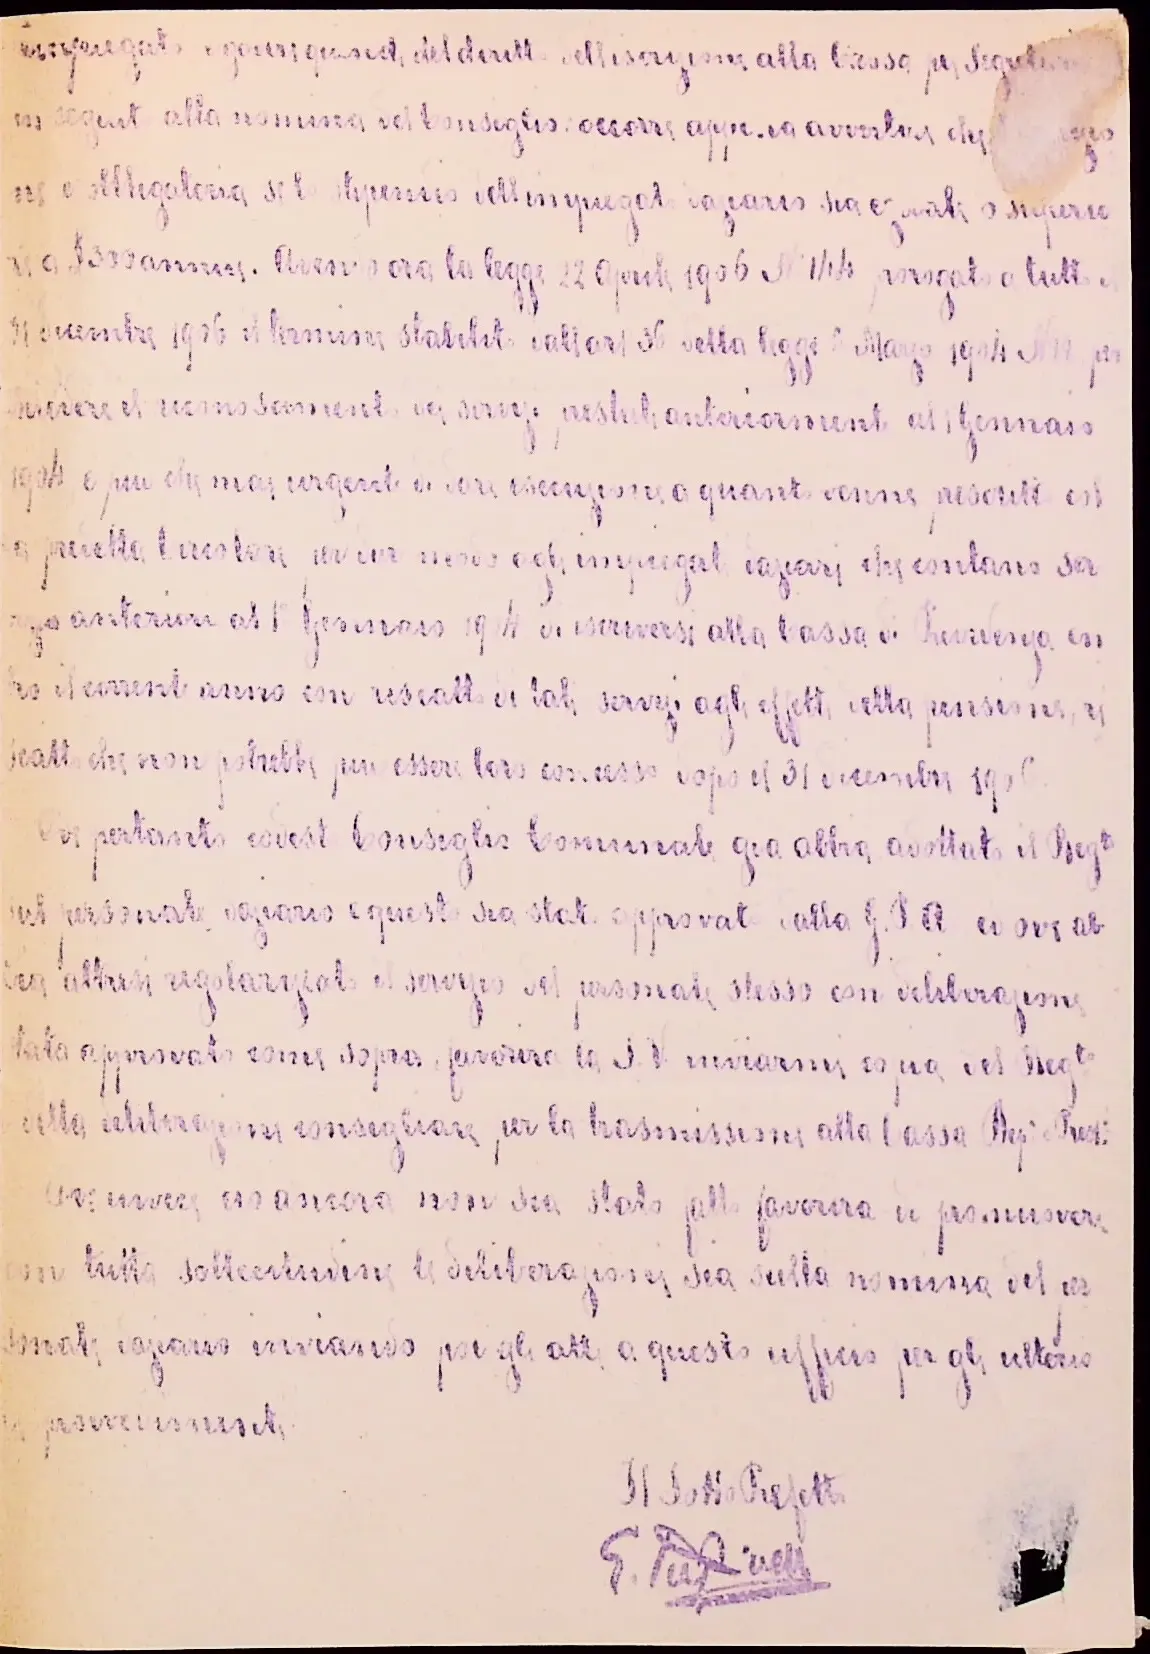 impiegato e goda quindi del diritto dell'iscrizione alla Cassa pei Segretari
in seguito alla nomina del Consiglio. occorre appena avvertire che
ne è obbligatoria se lo stipendio dell'impiegato daziario sia eguale o superio
re a £300 annue. Avendo ora la legge 22 Aprile 1906 N° 144 prorogato a tutto il
31 dicembre 1906 il termine stabilito dall'art 36 della legge 6 Marzo 1904 N. per
chiedere il riconoscimento dei servizi prestati anteriormente al 1 Gennaio
1904 è più che mai urgente di dare esecuzione a quanto venne prescritto col
la predetta Circolare per dar modo agli impiegati daziari che contano ser
vizio anteriore al 1° Gennaio 1904 di iscriversi alla Cassa di Previdenza en
tro il corrente anno con riscatto di tali servizi agli effetti della pensione, ri
scatto che non potrebbe più essere loro concesso dopo il 31 dicembre 1906.
Ove pertanto codesto Consiglio Comunale già abbia adottato il Regto
sul personale daziario e questo sia stato approvato dalla G.P.A. ed ove ab
bia altresì regolarizzato il servizio del personale stesso con deliberazione
stata approvata come sopra, favorirà la S.V. inviarmi copia del Regto
e della deliberazione consigliare per la trasmissione alla Cassa
Ove invece ciò ancora non sia stato fatto favorirà di promuovere
con tutta sollecitudine la deliberazione sia sulla nomina del per
sonale daziario inviando poi gli atti a questo ufficio per gli ulterio
ri provvedimenti.
Il Sotto Prefetto
G.